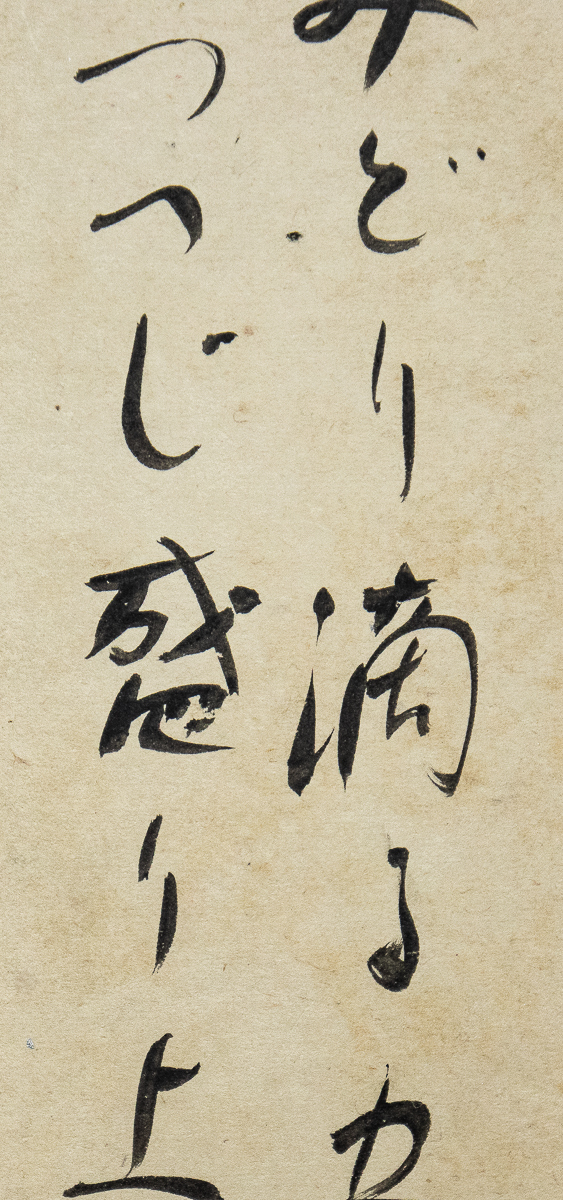 みどり滴る力
つつじ盛り上